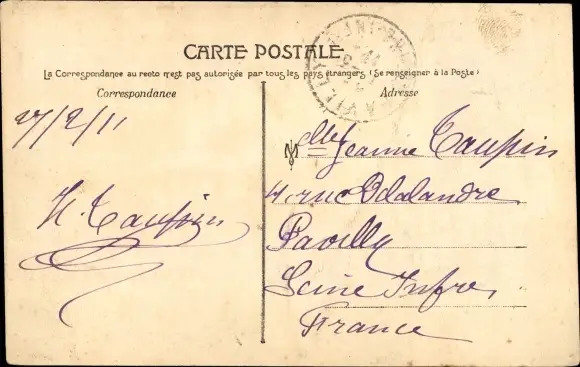 CARTE POSTALE
La Correspondance au recto n'est pas autorisée par tous les pays étrangers (Se renseigner à la Poste)
Correspondance
Adresse
27/2/11
H. Taupin
Mlle Jeanne Taupin
4 rue Delalandre
Pavilly
Seine Infre
France